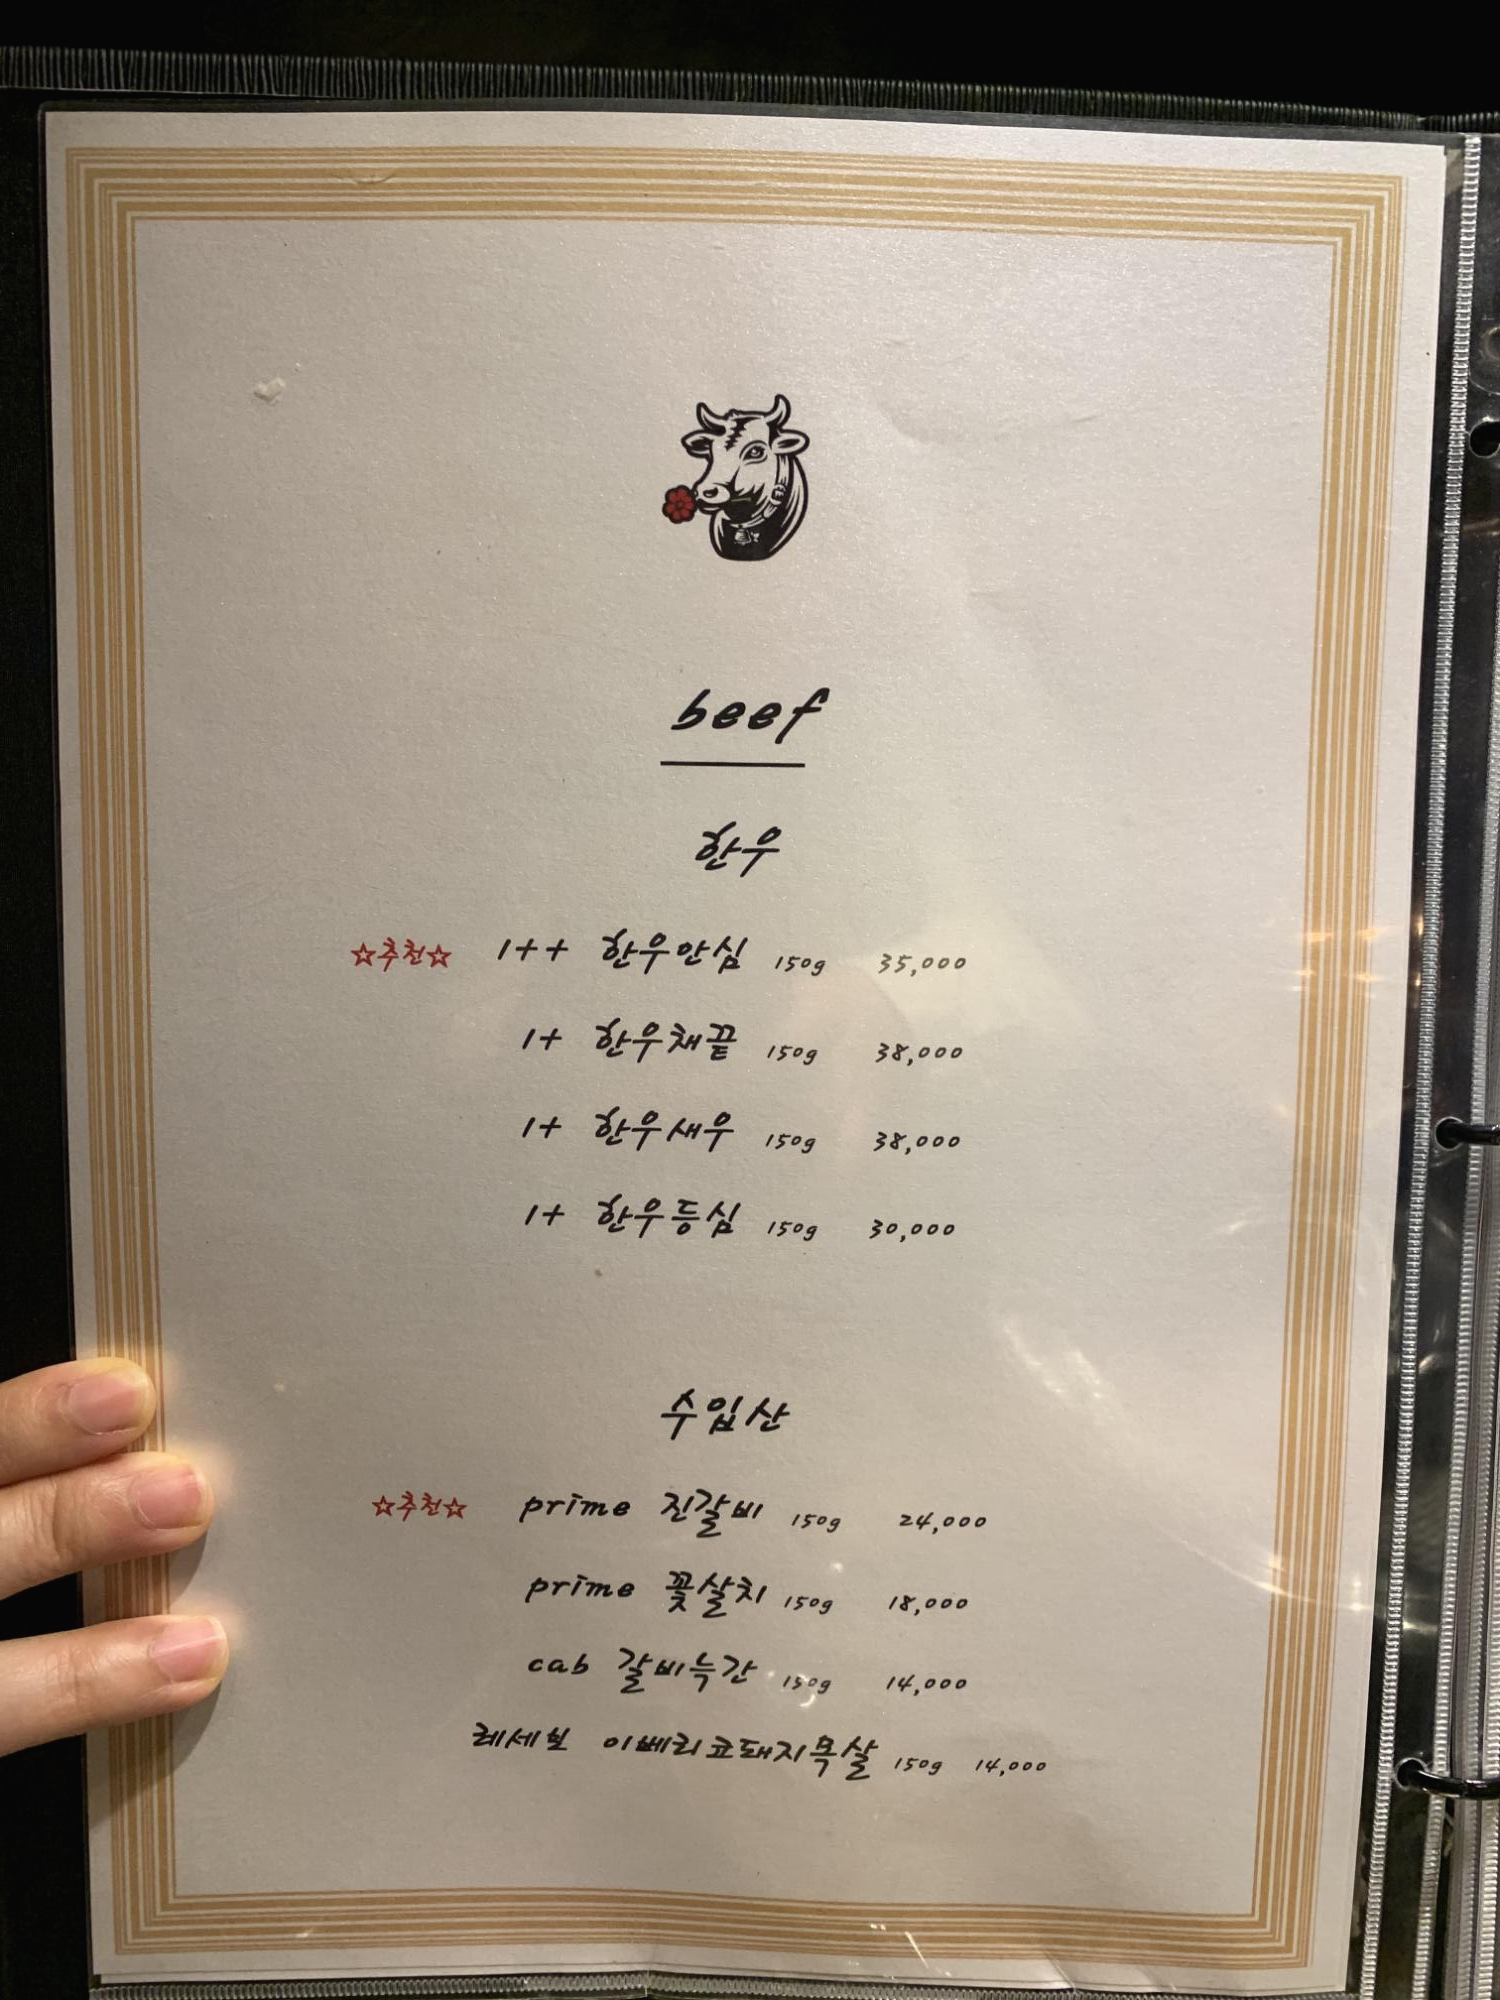 beef
한우
☆추천☆ 1++ 한우안심 150g 35,000
1+ 한우채끝 150g 38,000
1+ 한우새우 150g 38,000
1+ 한우등심 150g 30,000
수입산
☆추천☆ prime 진갈비 150g 24,000
prime 꽃살치 150g 18,000
cab 갈비늑간 150g 14,000
레세보 이베리코돼지목살 150g 14,000